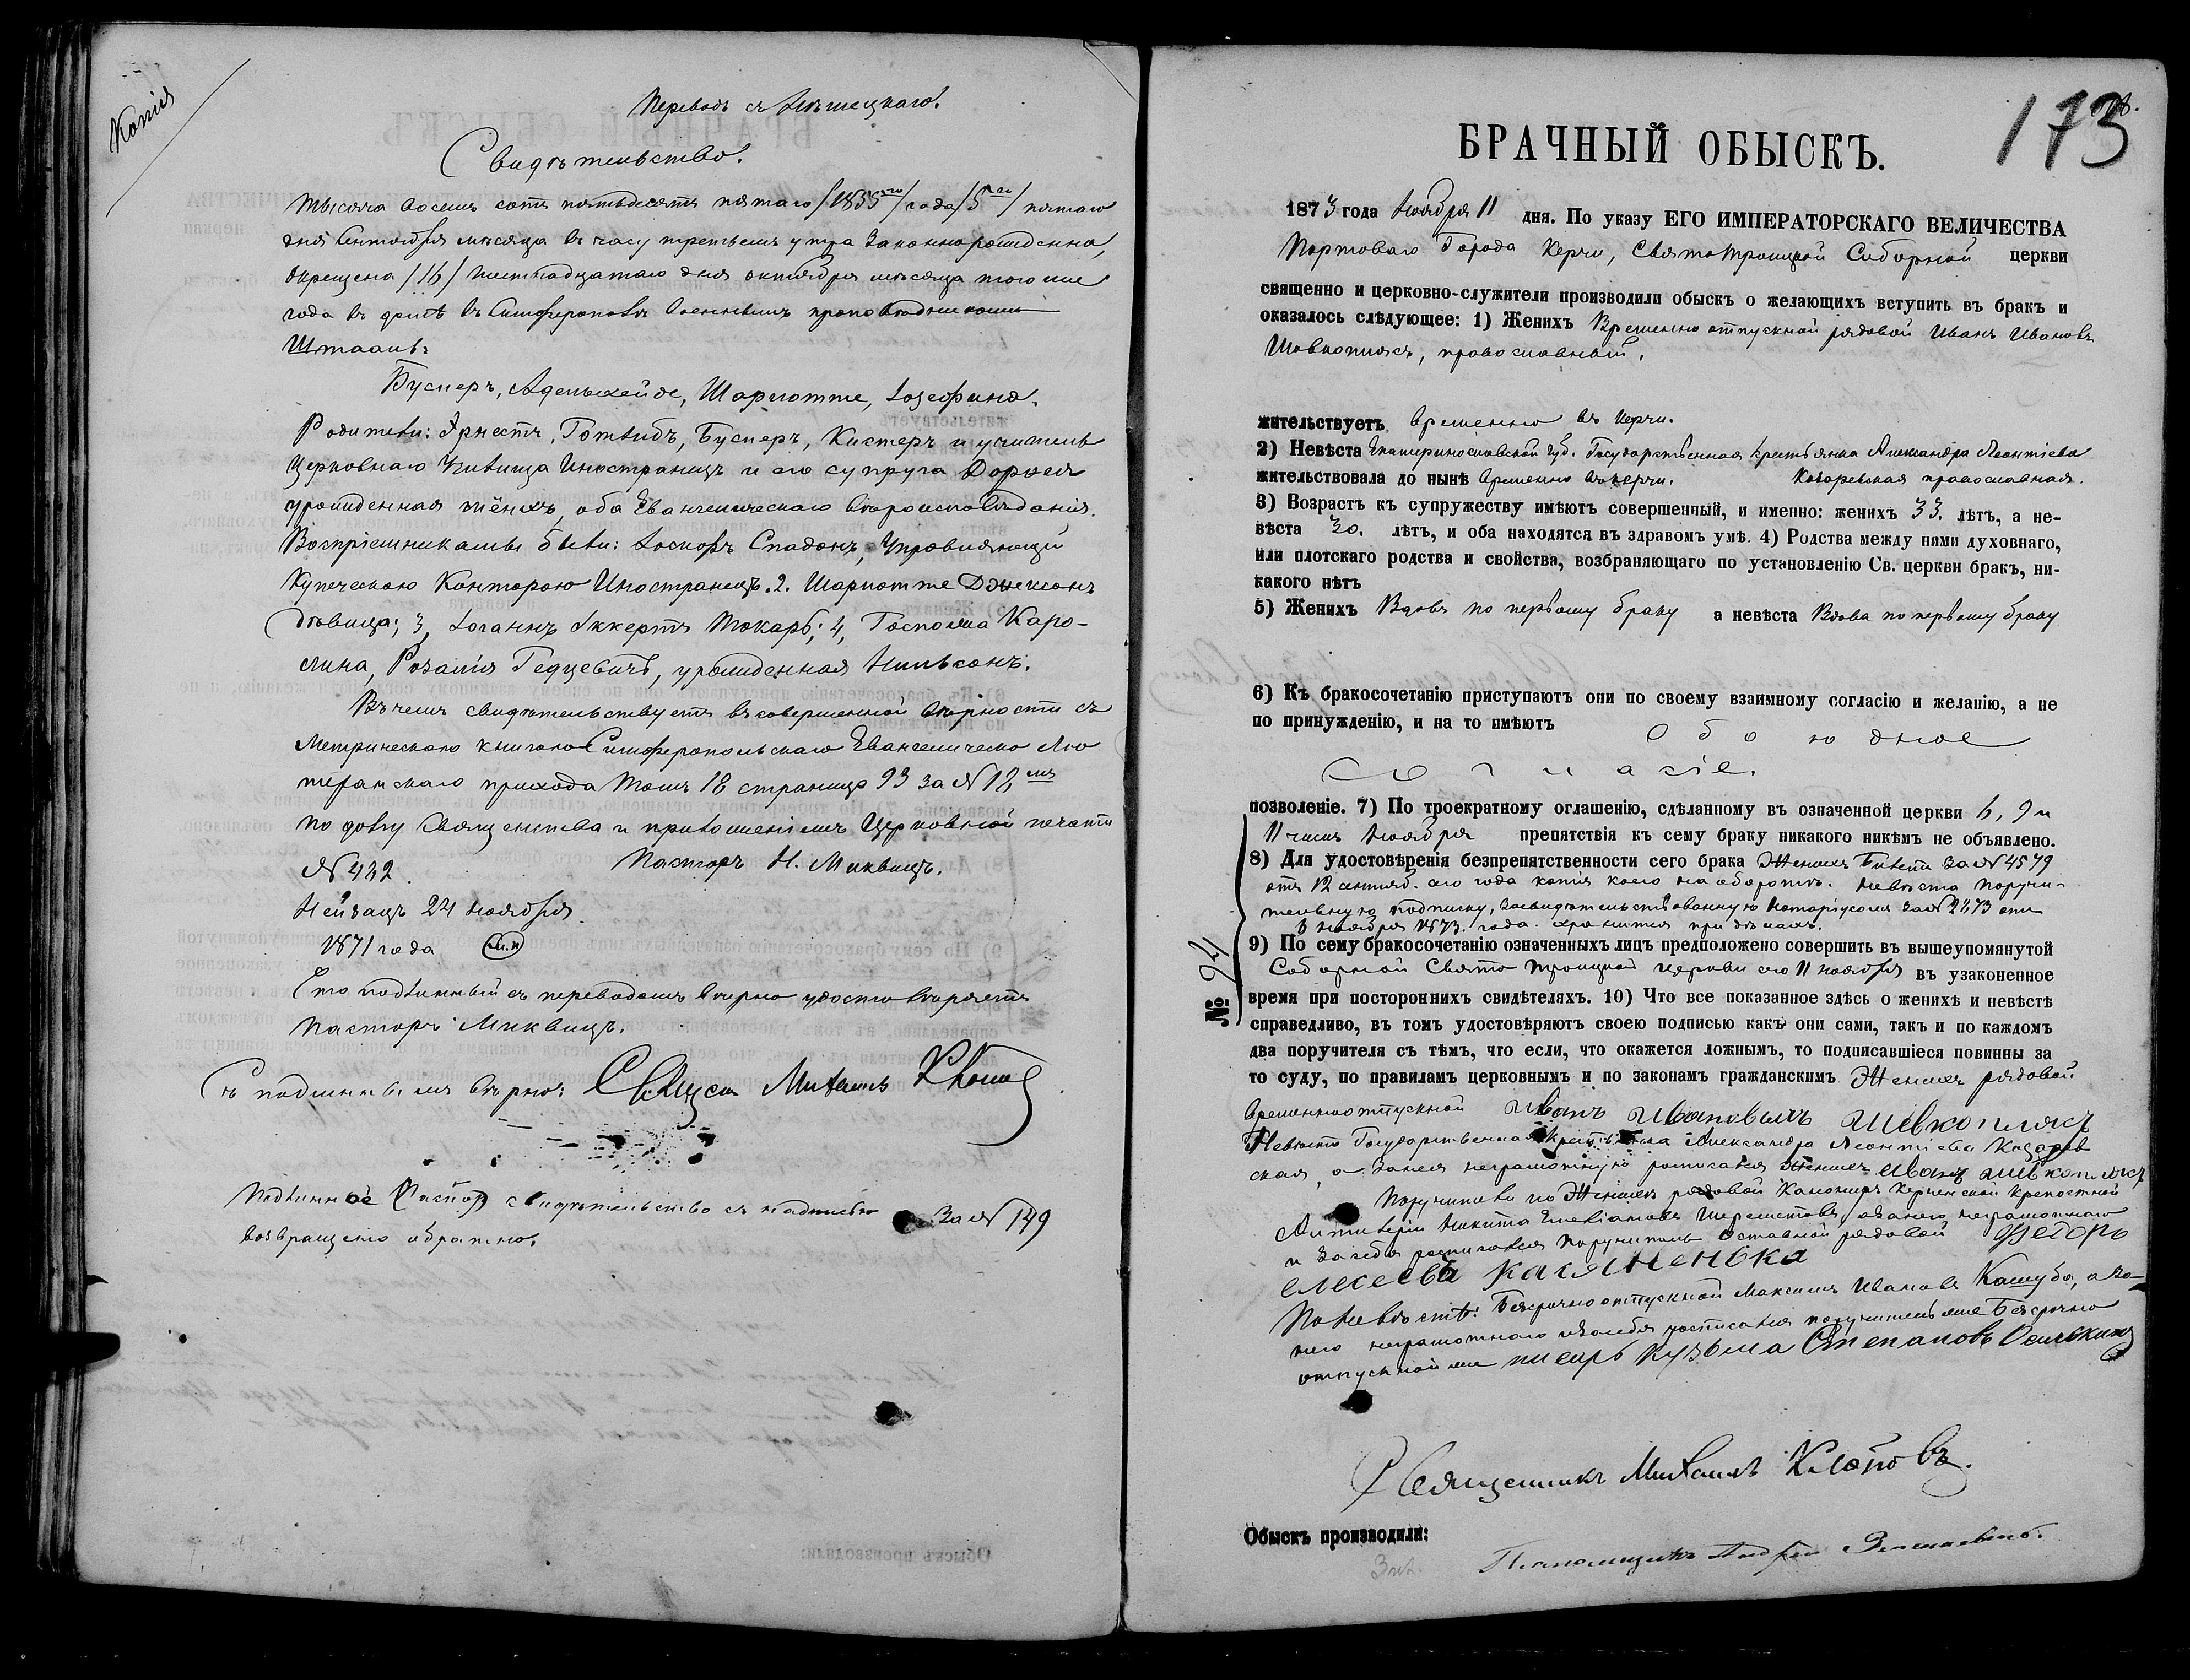 Копія
Переводъ съ Нѣмецкаго.
Свидѣтельство.
Тысяча восемь сотъ пятьдесятъ пятаго /1855го/ года /5го/ пятаго
дня Сентября мѣсяца въ часу третьемъ утра законнорожденна,
окрещена /16/ шестнадцатаго дня октября мѣсяца того же
года въ домѣ въ Симферополѣ военнымъ проповѣдникомъ
Штааль:
Бусперъ, Адельхейде, Шарлотте, Іозефина.
Родители: Эрнестъ, Готлибъ, Бусперъ, Кистеръ и учитель
Церковнаго Училища Иностранецъ и его супруга Доротея
урожденная, оба Евангелическаго вѣроисповѣданія.
Воспріемниками были: Іосифъ Спадонъ, Управляющій
Купеческою Конторою Иностранецъ. 2. Шарлотте Джексонъ
дѣвица; 3, Іоганнъ Эккертъ Токарь; 4, Госпожа Каро-
лина, Розалія Гедцевичъ, урожденная Нильсонъ.
Въ чемъ свидѣтельствуетъ въ совершенной вѣрности съ
Метрическою книгою Симферопольскаго Евангелическо Лю
теранскаго прихода Томъ 18 страница 93 за № 12мъ
по долгу Священства и приложеніемъ Церковной печати
№ 422. Пасторъ Н. Миквицъ.
Нейзацъ 24 Ноября
1871 года М.П.
Что подлинный съ переводомъ вѣрно удостовѣряетъ
Пасторъ Миквицъ.
Съ подлиннымъ вѣрно: Священ Михаилъ Клоп
Подлинное свидѣтельство съ надписью за № 149
возвращено обратно.
173
БРАЧНЫЙ ОБЫСКЪ.
1873 года Ноября 11 дня. По указу ЕГО ИМПЕРАТОРСКАГО ВЕЛИЧЕСТВА
Портоваго Города Керчи, СвятоТроицкой Соборной церкви
священно и церковно-служители производили обыскъ о желающихъ вступить въ бракъ и
оказалось слѣдующее: 1) Женихъ Временно отпускной рядовой Иванъ Ивановъ
Шевкоплясъ, православный.
жительствуетъ временно въ Керчи.
2) Невѣста Екатеринославской Губ. Государственная крестьянка Александра Леонтіева
жительствовала до нынѣ временно въ Керчи. Козаревская православная.
3) Возрастъ къ супружеству имѣютъ совершенный, и именно: женихъ 33. лѣтъ, а не-
вѣста 30. лѣтъ, и оба находятся въ здравомъ умѣ. 4) Родства между ними духовнаго,
или плотскаго родства и свойства, возбраняющаго по установленію Св. церкви бракъ, ни-
какого нѣтъ
5) Женихъ Вдовъ по первому браку а невѣста Вдова по первому браку
6) Къ бракосочетанію приступаютъ они по своему взаимному согласію и желанію, а не
по принужденію, и на то имѣютъ Обоюдное
Согласіе.
позволеніе. 7) По троекратному оглашенію, сдѣланному въ означенной церкви 6, 9 и
11 числъ Ноября препятствія къ сему браку никакого никѣмъ не объявлено.
8) Для удостовѣренія безпрепятственности сего брака Женихъ Билетъ за № 4579
отъ 12 сентяб. сего года копія коего на оборотѣ. Невѣста поручи-
тельную подписку, засвидѣтельствованную Нотаріусомъ за № 2273 отъ
6 ноября 1873 года. хранится при дѣлахъ.
№ 94
9) По сему бракосочетанію означенныхъ лицъ предположено совершить въ вышеупомянутой
Соборной Свято Троицкой церкви сего 11 ноября въ узаконенное
время при постороннихъ свидѣтеляхъ. 10) Что все показанное здѣсь о женихѣ и невѣстѣ
справедливо, въ томъ удостовѣряютъ своею подписью какъ они сами, такъ и по каждомъ
два поручителя съ тѣмъ, что если, что окажется ложнымъ, то подписавшіеся повинны за
то суду, по правиламъ церковнымъ и по законамъ гражданскимъ Женихъ рядовой
временноотпускной Иванъ Ивановичъ Шевкоплясъ
Невѣста Государственная крестьянка Александра Леонтіева Казарев
ская, а занея неграмотную росписался Женихъ Иванъ Шевкоплясъ
Поручители по Женихѣ рядовой Канониръ Керченской Крѣпостной
Артилеріи Никита Емеліановъ Шереметовъ, а занего неграмотнаго
и засебя росписался поручитель отставной рядовой Федоръ
елексеевъ касяненька
По Невѣстѣ: Безсрочноотпускной Максимъ Ивановъ Кашуба, а за-
него неграмотнаго и засебя росписался поручитель же Безсрочно
отпускной же писарь Кузьма Степановъ
Священникъ Михаилъ Клоповъ.
Обыскъ производили:
Псаломщикъ Андрей